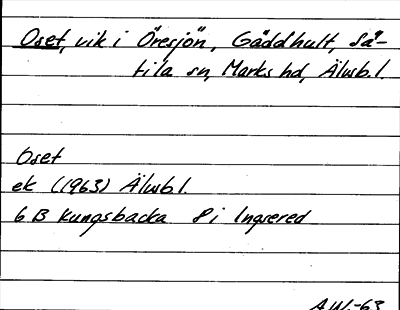 Oset, vik i Öresjön, Gäddhult, Sä-
tila sn, Marks hd, Älvsb.l.
Oset
ek (1963) Älvsb.l.
6 B Kungsbacka 8 i Ingsered
AW.-63